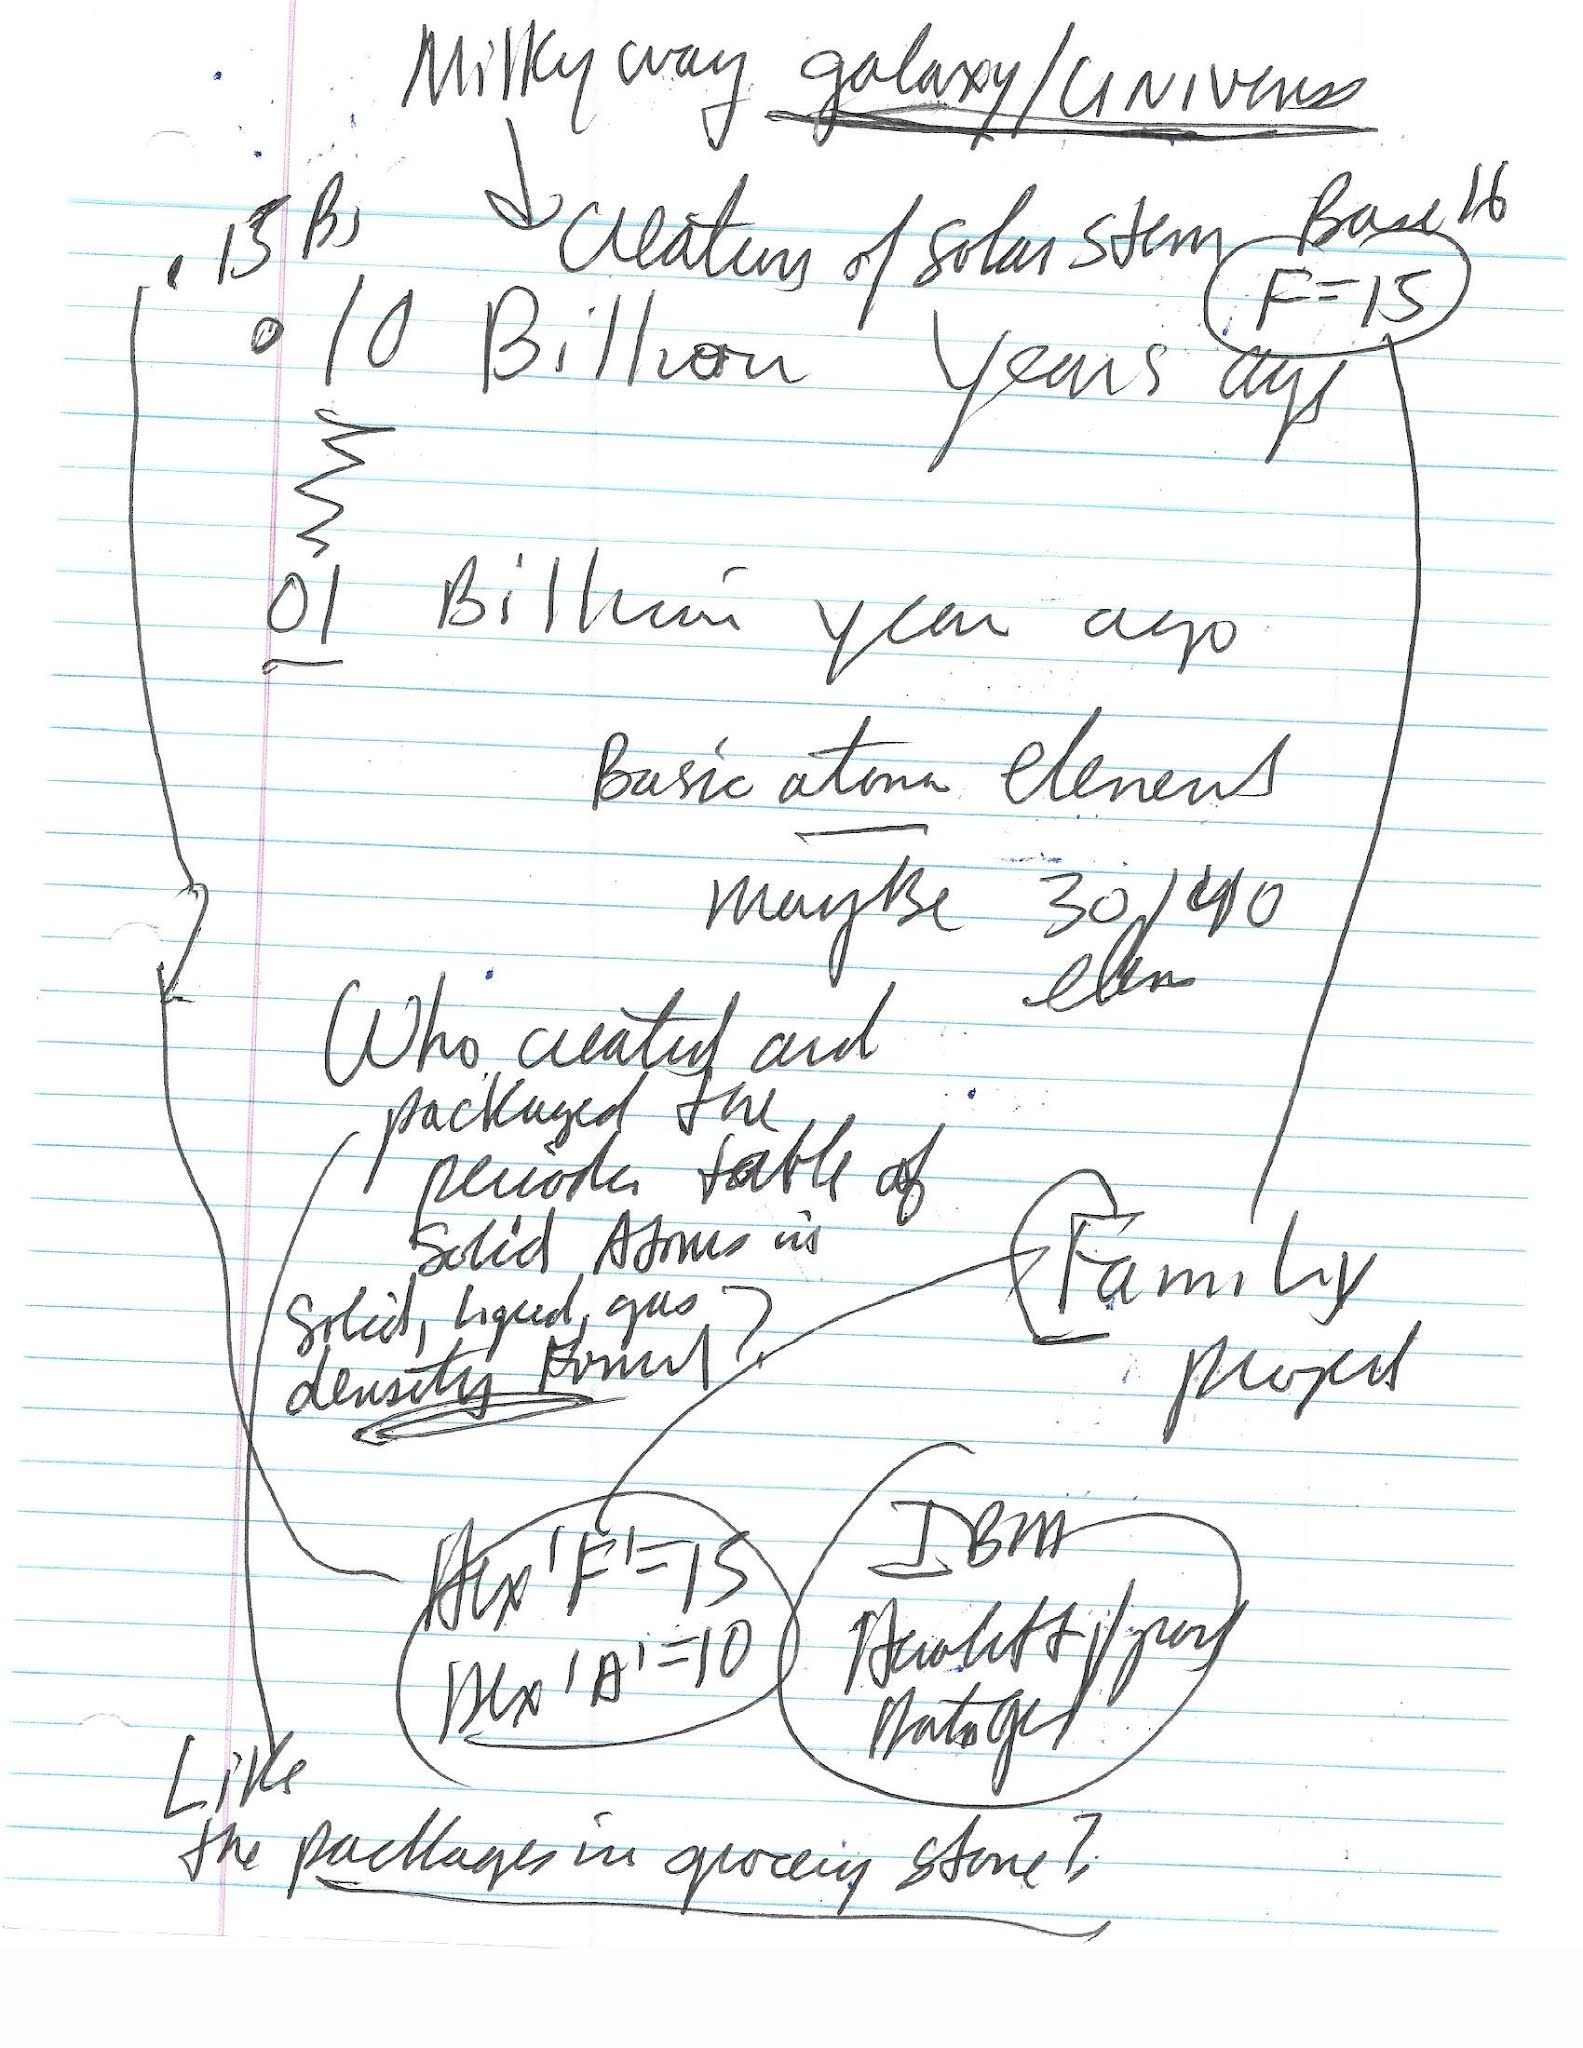 Milky way galaxy/Universe
Base 16
. 15 Bs
Creation of solar stem
F=15
o 10 Billion years ago
01 Billion year ago
Basic atom element
maybe 30/40
elem
Who created and
packaged the
periodic table of
Solid Atoms in
Solid, liquid, gas
density Format?
Family
project
Hex 'F'=15
Hex 'A'=10
IBM
Like
the packages in grocery store?